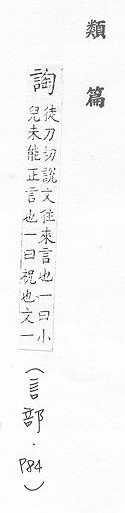 類篇
詾徒刀切說文往來言也一曰小
兒未能正言也一曰祝也文一
(言部．P84)